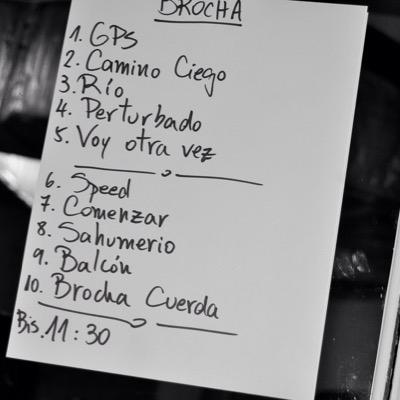 BROCHA
1. GPS
2. Camino Ciego
3. Río
4. Perturbado
5. Voy otra vez
6. Speed
7. Comenzar
8. Sahumerio
9. Balcón
10. Brocha Cuerda
Bis. 11:30